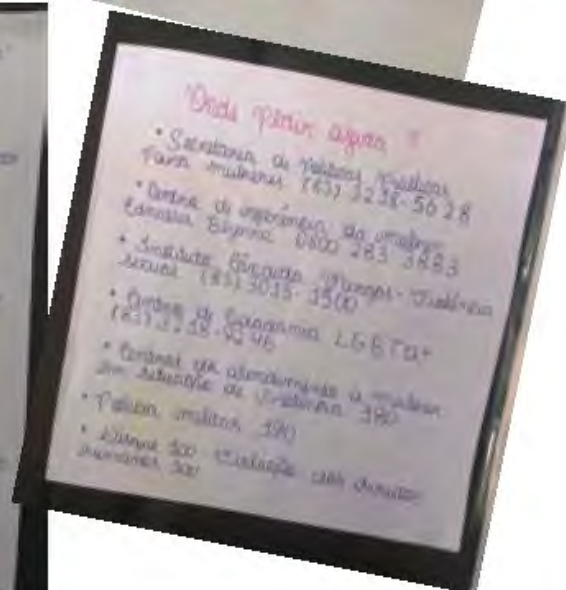 Onde pedir ajuda ?
• Secretaria de Políticas Públicas
Para mulheres (83) 3218-5628
• Centro de referência da mulher
Ednalva Bezerra 0800 283 3883
• Instituto - Violência
sexual (83) 3015-1500
• Centro de Cidadania LGBTQ+
(83) 3218-9246
• Central de atendimento à mulher
em situação de Violência 180
• Polícia militar 190
• Disque 100 - Violação dos direitos
humanos 100